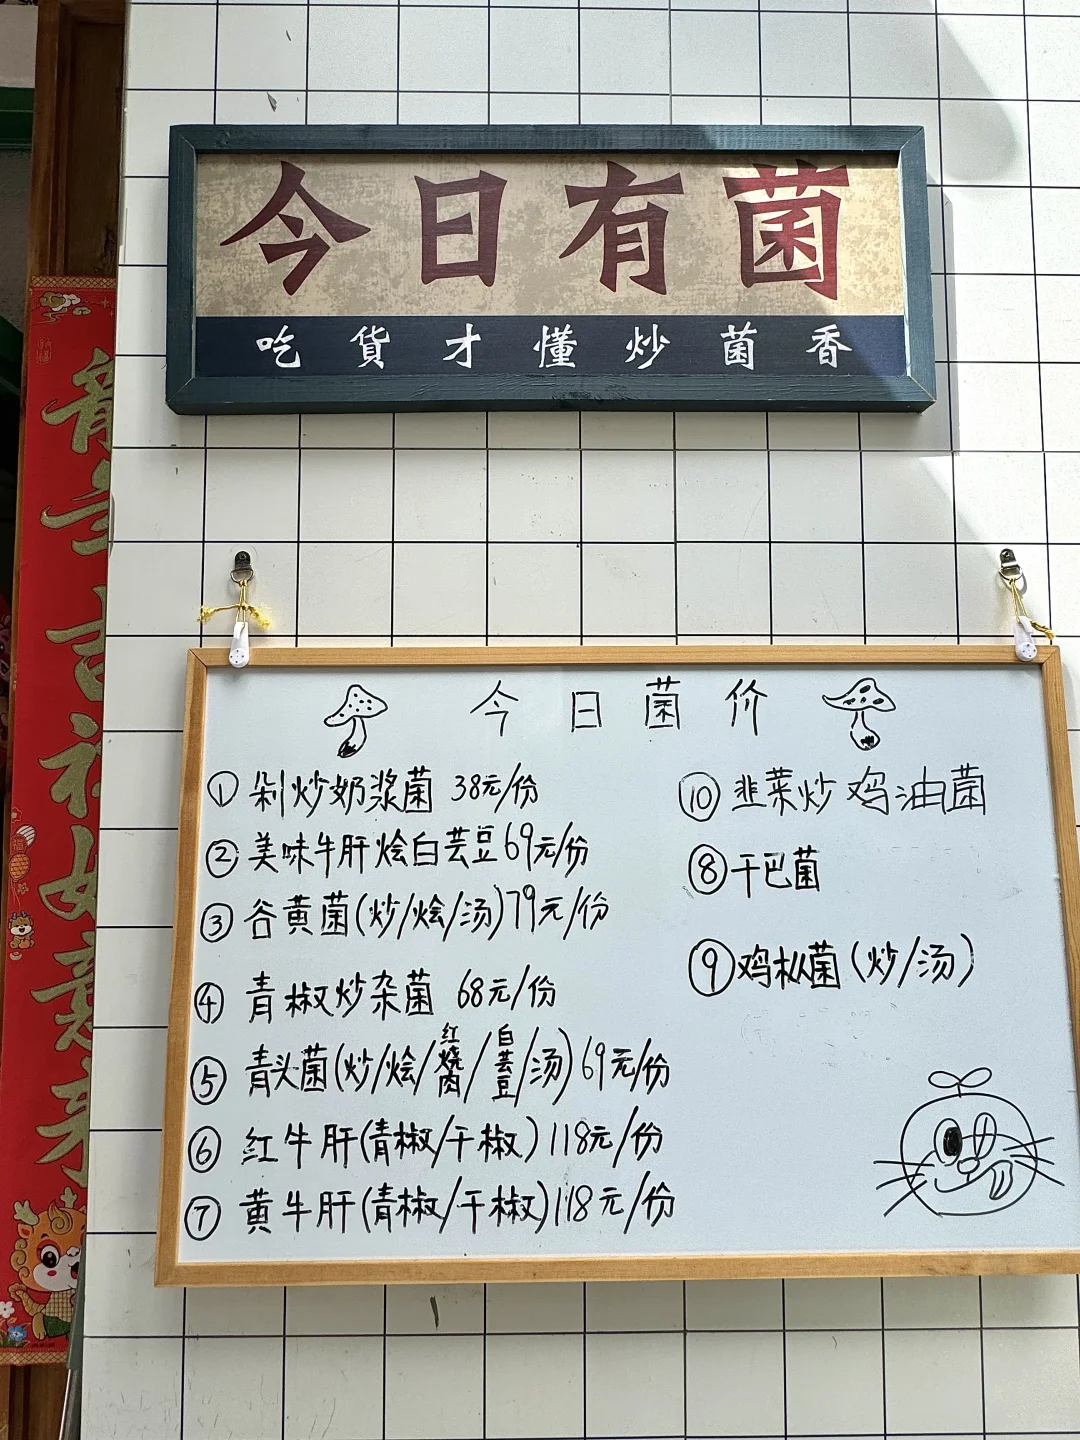 今日有菌
吃貨才懂炒菌香
今日菌价
① 剁炒奶浆菌 38元/份
② 美味牛肝烩白芸豆69元/份
③ 谷黄菌(炒/烩/汤)79元/份
④ 青椒炒杂菌 68元/份
⑤ 青头菌(炒/烩/红烧肉/白芸豆/汤)69元/份
⑥ 红牛肝(青椒/干椒)118元/份
⑦ 黄牛肝(青椒/干椒)118元/份
⑩ 韭菜炒鸡油菌
⑧干巴菌
⑨鸡枞菌(炒/汤)